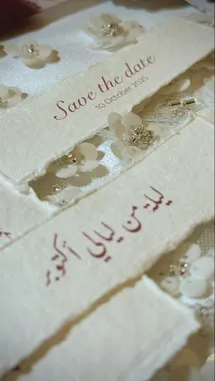 Save the date
10 October 2025
ليلة من ليالي أكتوبر